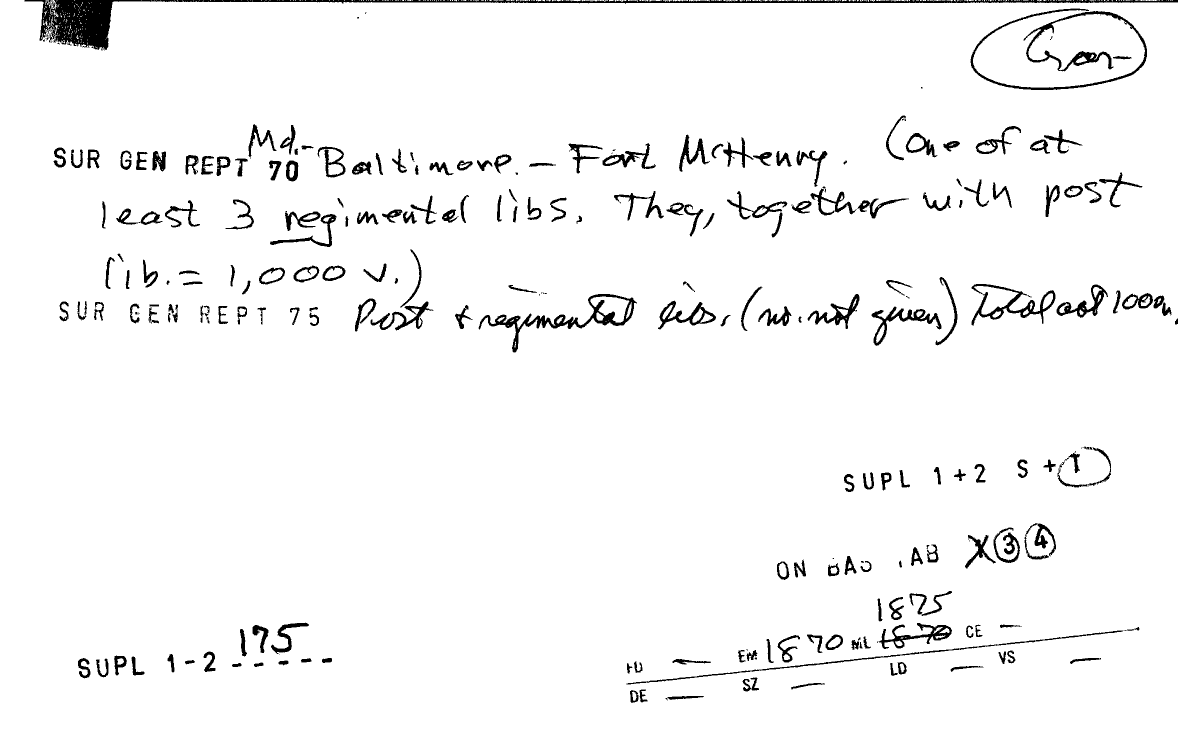 SUR GEN REPT 70 Md.- Baltimore. - Fort McHenry. (One of at
least 3 regimental libs. They, together with post
lib. = 1,000 v.)
SUR GEN REPT 75 Post + regimental libs. (no. not given) Total 1000
SUPL 1+2 S + T
ON AB X 3 4
1875
SUPL 1-2 175
EM 1870 ML 1870 CE —
DE — SZ — LD — VS —